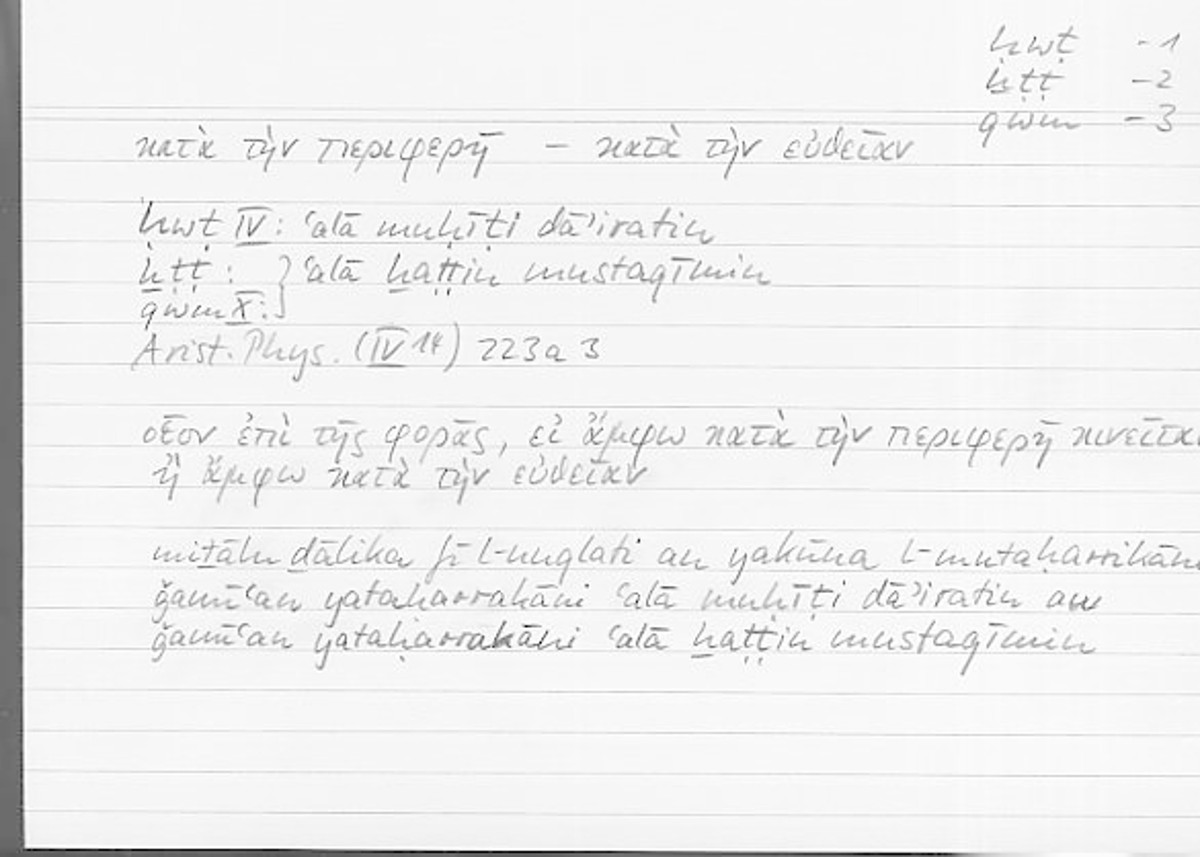 ḥwṭ -1
ḫṭṭ -2
qwm -3
κατὰ τὴν περιφερῆ – κατὰ τὴν εὐθεῖαν
ḥwṭ IV: ʿalā muḥīṭi dāʾiratin
ḫṭṭ : } ʿalā ḫaṭṭin mustaqīmin
qwm X:
Arist. Phys. (IV 14) 223a 3
οἷον ἐπὶ τῆς φορᾶς, εἰ ἄμφω κατὰ τὴν περιφερῆ κινεῖται
ἢ ἄμφω κατὰ τὴν εὐθεῖαν
miṯālu ḏālika fī l-nuqlati an yakūna l-mutaḥarrikāni
ǧamīʿan yataḥarrakāni ʿalā muḥīṭi dāʾiratin aw
ǧamīʿan yataḥarrakāni ʿalā ḫaṭṭin mustaqīmin